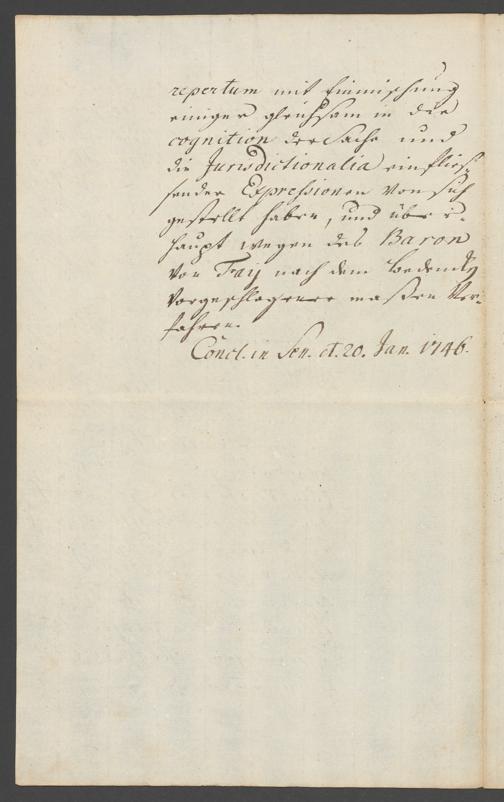 repertum mit Einmischung
einiger gleichsam in die
cognition der Sache und
die Jurisdictionalia einflies-
sender Expressionen von sich
gestellt haben, und über-
haupt wegen des Baron
von Fay nach dem bedencken
vorgeschlagener maßen ver-
fahren.
Concl. in Sen. d. 20. Jan. 1746.